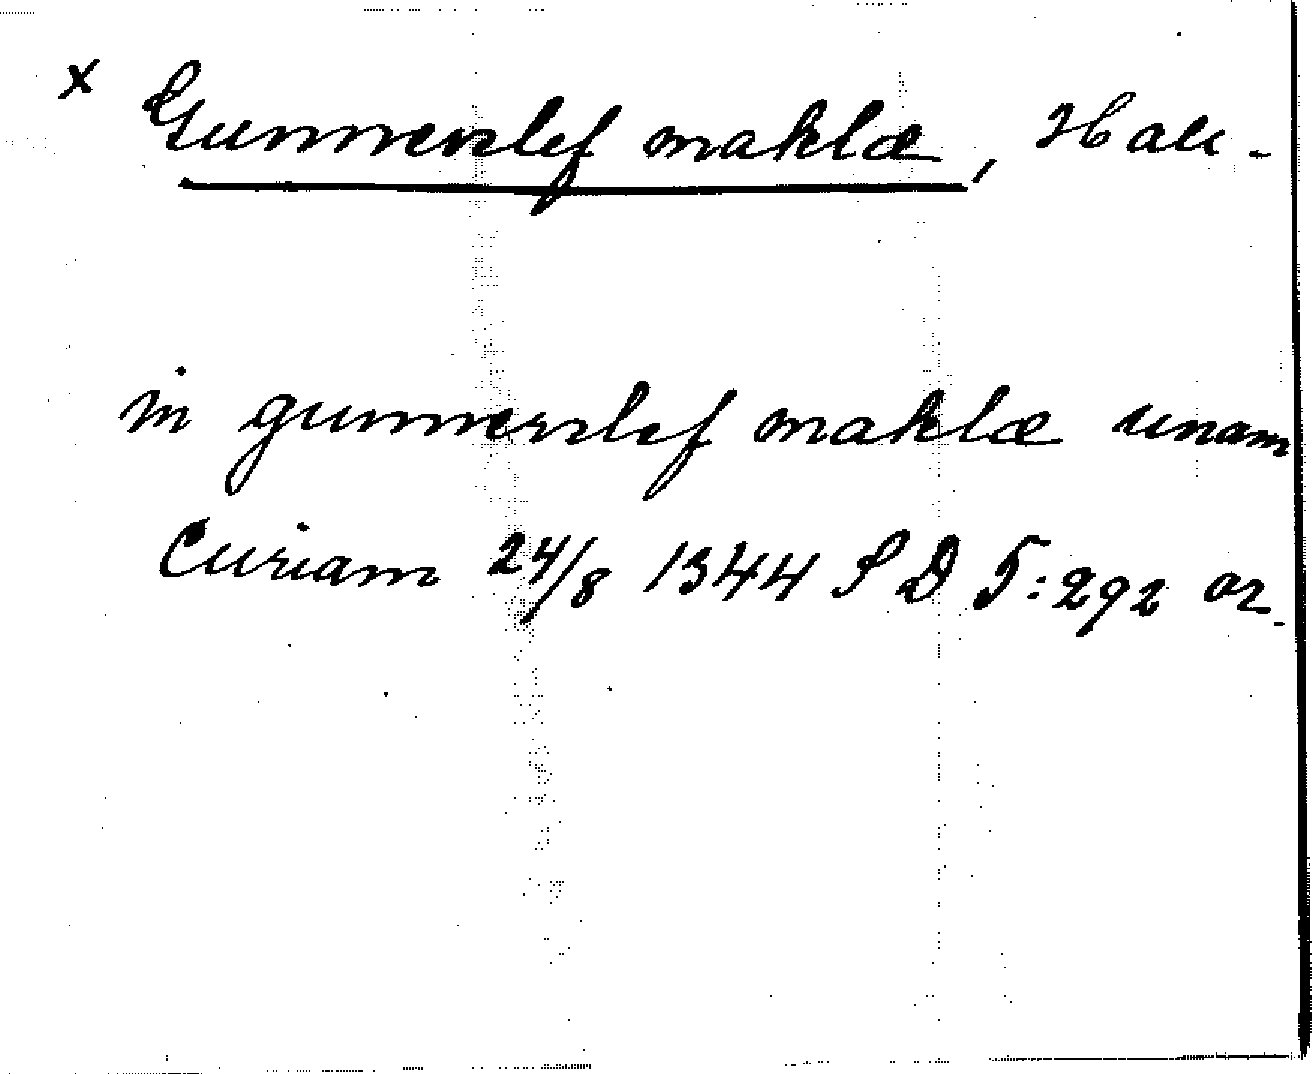 x Gunnerslef maklæ, Hall-
in gunnerslef maklæ unam
Curiam 24/8 1344 SD 5:292 or.